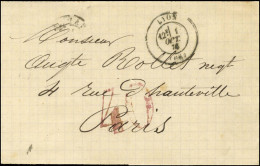 LYON
1
OCT.
Monsieur
Augte Rollet negt
4 rue d'hauteville
Paris